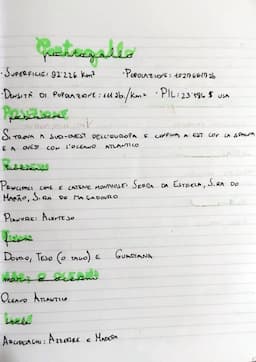 Portogallo
· Superficie: 92 226 Km² · Popolazione: 10276617
· Densità di popolazione: 111 ab./Km² · PIL: 23 186 $ USA
Posizione
Si trova a sud-ovest dell'Europa e confina a est con la Spagna
e a ovest con l'oceano Atlantico
Principali cime e catene montuose: Serra da Estrela, S.ra do
Marão, S.ra de
Pianure: Alentejo
Fiumi
Douro, Tejo (o Tago) e Guadiana
Mari e oceani
Oceano Atlantico
Isole
Arcipelaghi: Azzorre e Madera